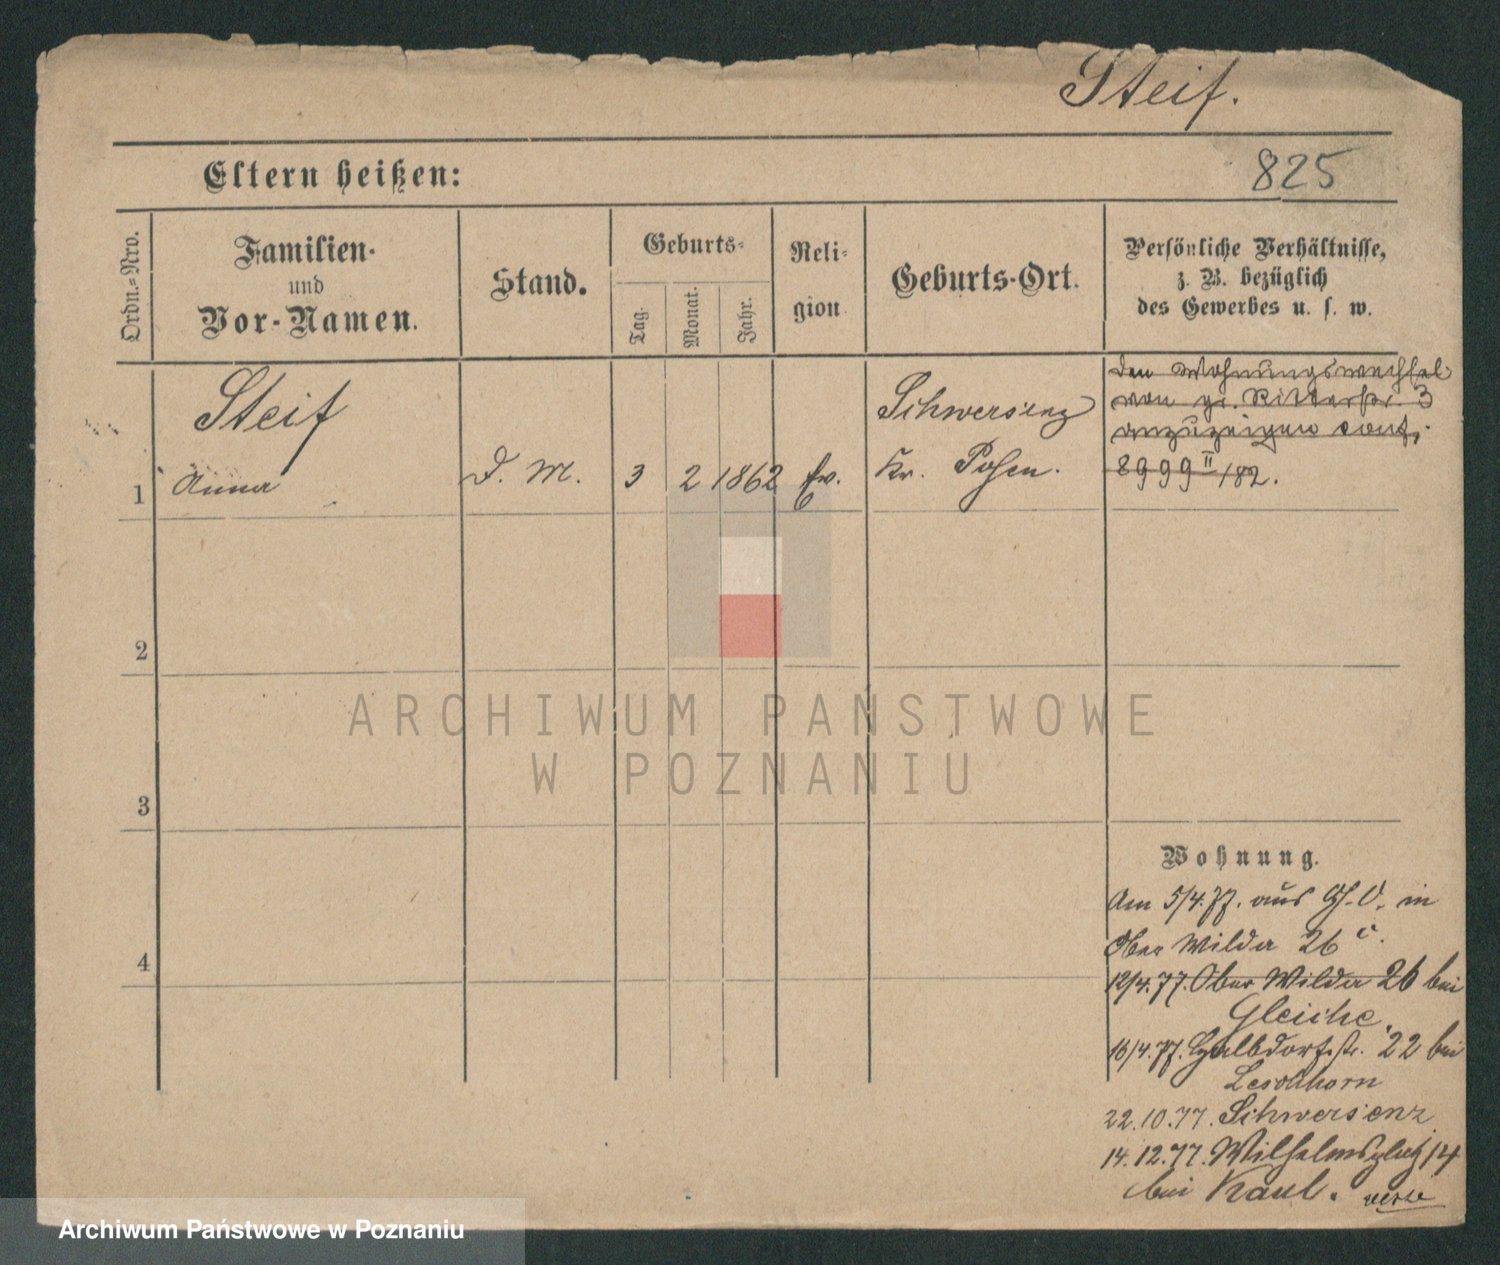 Steif.
Eltern heißen:
825
Ordn.-Nro.
Familien-
und
Vor-Namen.
Stand.
Geburts-
Tag.
Monat.
Jahr.
Reli-
gion
Geburts-Ort.
Persönliche Verhältnisse,
z. B. bezüglich
des Gewerbes u. s. w.
1
Steif
Anna
D. M.
3
2
1862
Schwersenz
Kr. Posen.
den Wohnungswechsel
von gr. Ritterstr. 3
anzuzeigen
8999 II/82.
2
3
4
ARCHIWUM PAŃSTWOWE
W POZNANIU
Wohnung.
Am 5/4.77. aus in
Ober Wilda 26
12/4.77. Ober Wilda 26 bei
Gleiche.
16/4.77. Halbdorfstr. 22 bei
22.10.77. Schwersenz
14.12.77. Wilhelmsplatz 14
bei Kaul.
Archiwum Państwowe w Poznaniu